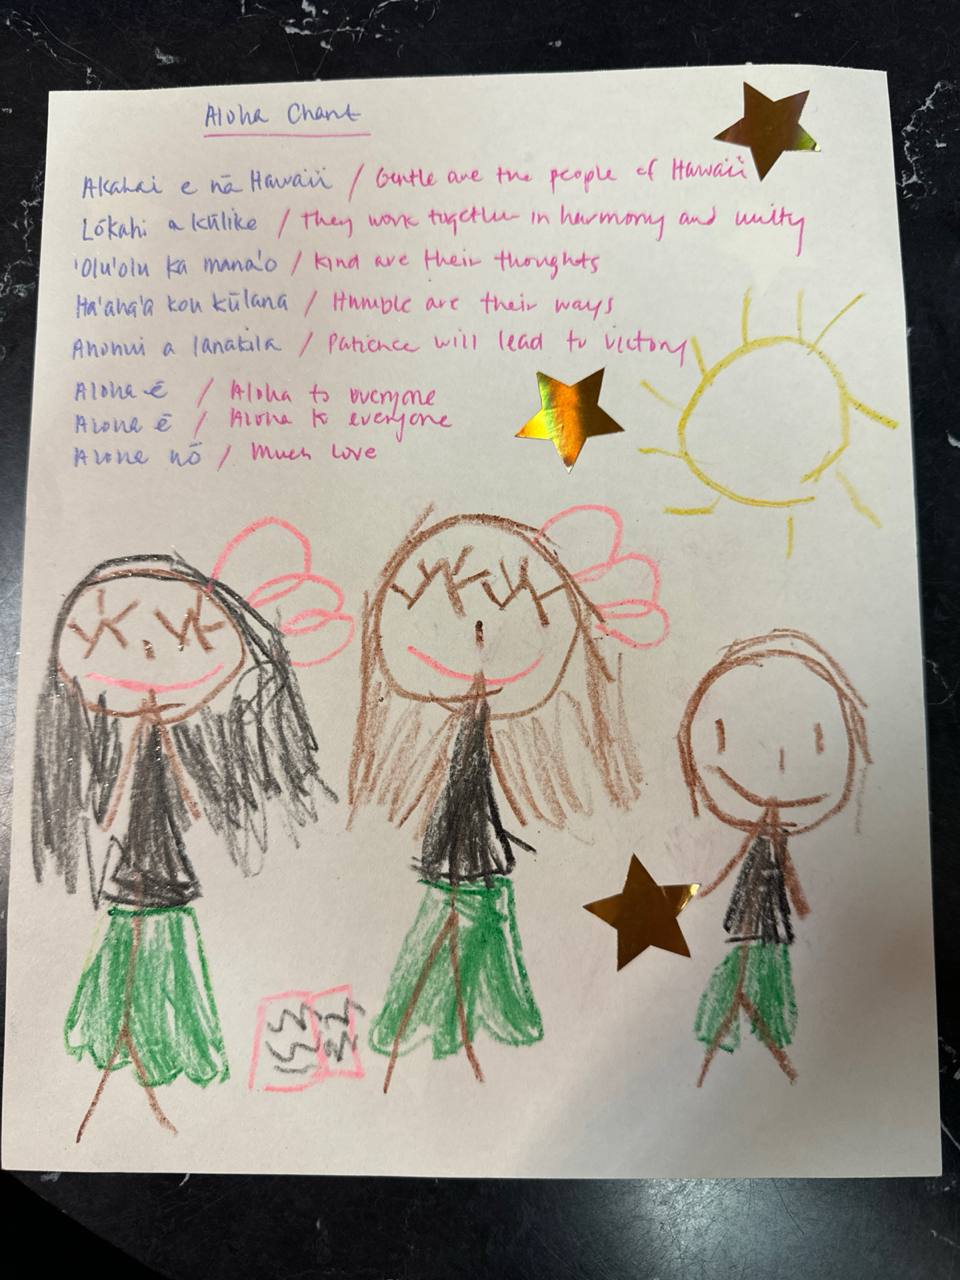 Aloha Chant
Akahai e nā Hawaii / Gentle are the people of Hawaii
Lōkahi a kūlike / They work together in harmony and unity
'Olu'olu ka mana'o / Kind are their thoughts
Ha'aha'a kou kūlana / Humble are their ways
Ahonui a lanakila / Patience will lead to victory
Aloha ē / Aloha to everyone
Aloha ē / Aloha to everyone
Aloha nō / Much love